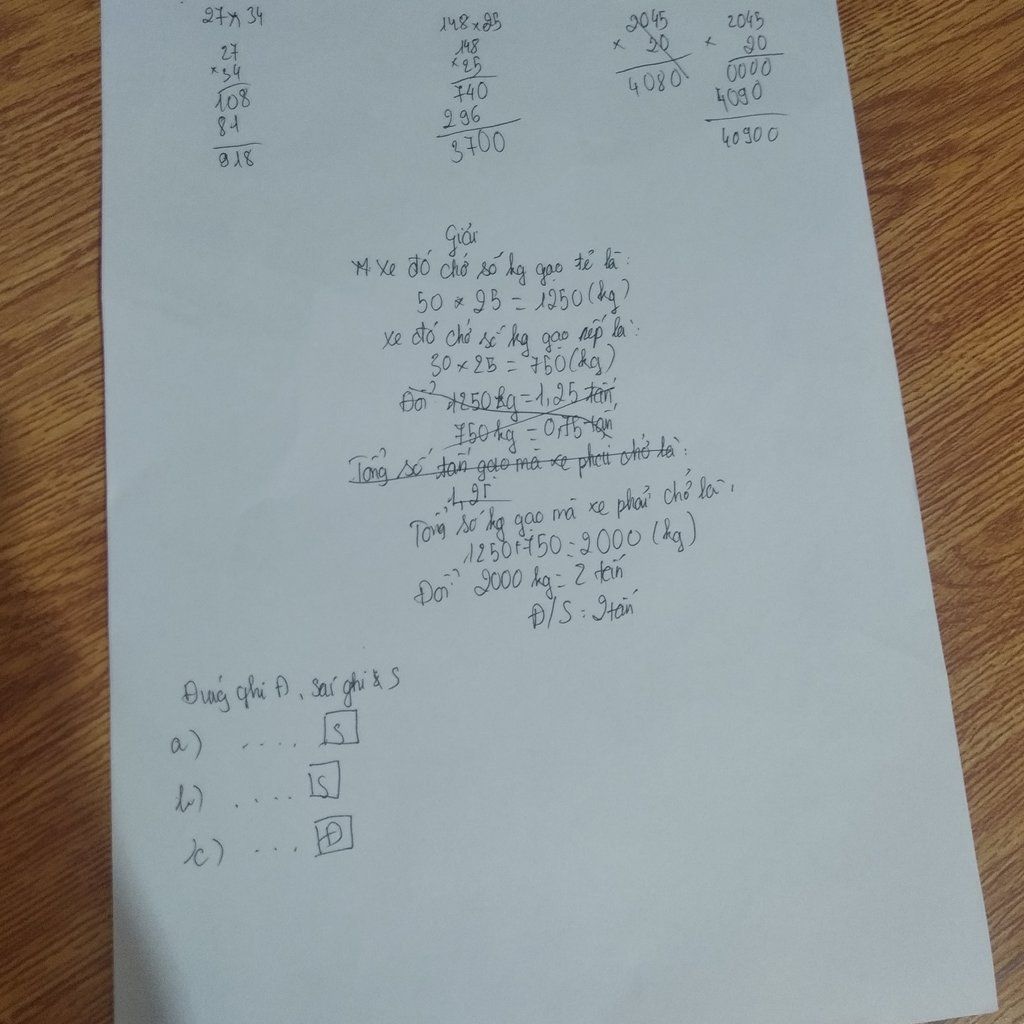 27 x 34
27
x 34
108
81
918
148 x 25
148
x 25
740
296
3700
2045
x 20
4080
2045
x 20
0000
4090
40900
Giải
Xe đó chở số kg gạo tẻ là:
50 x 25 = 1250 (kg)
Xe đó chở số kg gạo nếp là:
30 x 25 = 750 (kg)
Đổi 1250 kg = 1,25 tấn
750 kg = 0,75 tấn
Tổng số tấn gạo mà xe phải chở là:
1,25
Tổng số kg gạo mà xe phải chở là:
1250 + 750 = 2000 (kg)
Đổi 2000 kg = 2 tấn
Đ/S: 2 tấn
Đúng ghi Đ, sai ghi S
a) .... S
b) .... S
c) ... Đ